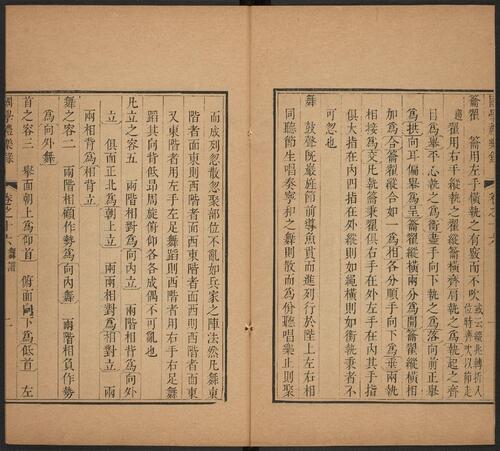 籥翟　籥用左手橫執之有竅而不吹
翟用右手縱執之翟縱籥橫齊肩執之為執起之齊
目為舉平心執之為衡盡手向下執之為落向前正舉
為拱向耳偏舉為呈籥翟縱橫兩分為開籥翟縱橫相
加為合籥翟縱合如一為相各分順手向下為垂兩執
相接為交凡執籥秉翟俱右手在外左手在內其手指
俱大指在內四指在外縱則如繩橫則如衡執秉者不
可忽也
舞　鼓聲既嚴旌節前導魚貫而進列行於陛上左右相
同聽節生唱奏寧和之舞則散而為佾聽唱樂止則聚
而成列忽散忽聚部位不亂如兵家之陣法然凡舞東
階者面東則西階者面西東階者面西則西階者面東
又東階者用左手左足舞蹈則西階者用右手右足舞
蹈其向背低昂周旋俯仰各各成偶不可亂也
凡立之容五　兩階相對為向內立　兩階相背為向外
立　俱面正北為朝上立　兩兩相對為相對立　兩
兩相背為相背立
舞之容二　兩階相顧作勢為向內舞　兩階相負作勢
為向外舞
首之容三　舉面朝上為仰首　俯面向下為低首　左
國學禮樂錄　卷之十六　舞譜　二